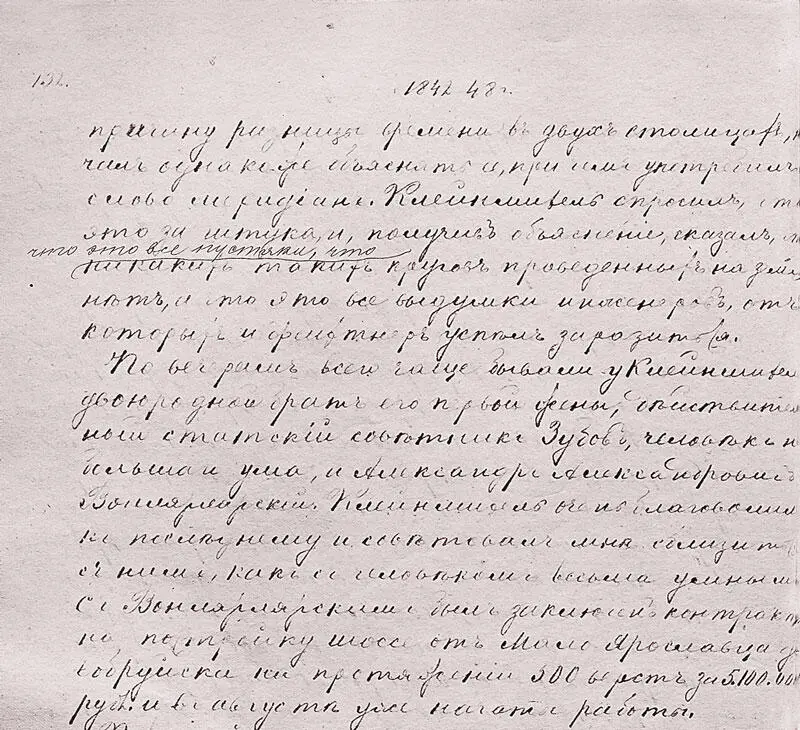 132.
1842 48 г.
причину разницы времени въ двухъ столицахъ,
чалъ однакоже объяснять и, при семъ употребилъ
слово меридіанъ. Клейнмихель спросилъ, что
это за штука, и, получивъ объясненіе, сказалъ,
что это все пустяки, что
никакихъ такихъ круговъ проведенныхъ на зем
нѣтъ, и что это все выдумки инженеровъ, отъ
которыхъ и фельдъегеръ успѣлъ заразиться.
По вечерамъ всего чаще бывали у Клейнмихеля
двоюродной братъ его первой жены, дѣйствител
ный статскій совѣтникъ Зубовъ, человѣкъ не
большаго ума, и Александръ Александровичъ
Вонлярлярскій. Клейнмихель очень благоволилъ
къ послѣднему и совѣтовалъ мнѣ сблизиться
съ нимъ, какъ съ человѣкомъ весьма умнымъ
Съ Вонлярлярскимъ былъ заключенъ контрактъ
на постройку шоссе отъ Мало Ярославца до
Бобруйска на протяженіи 500 верстъ за 5.100.000
руб. и въ августѣ уже начаты работы.